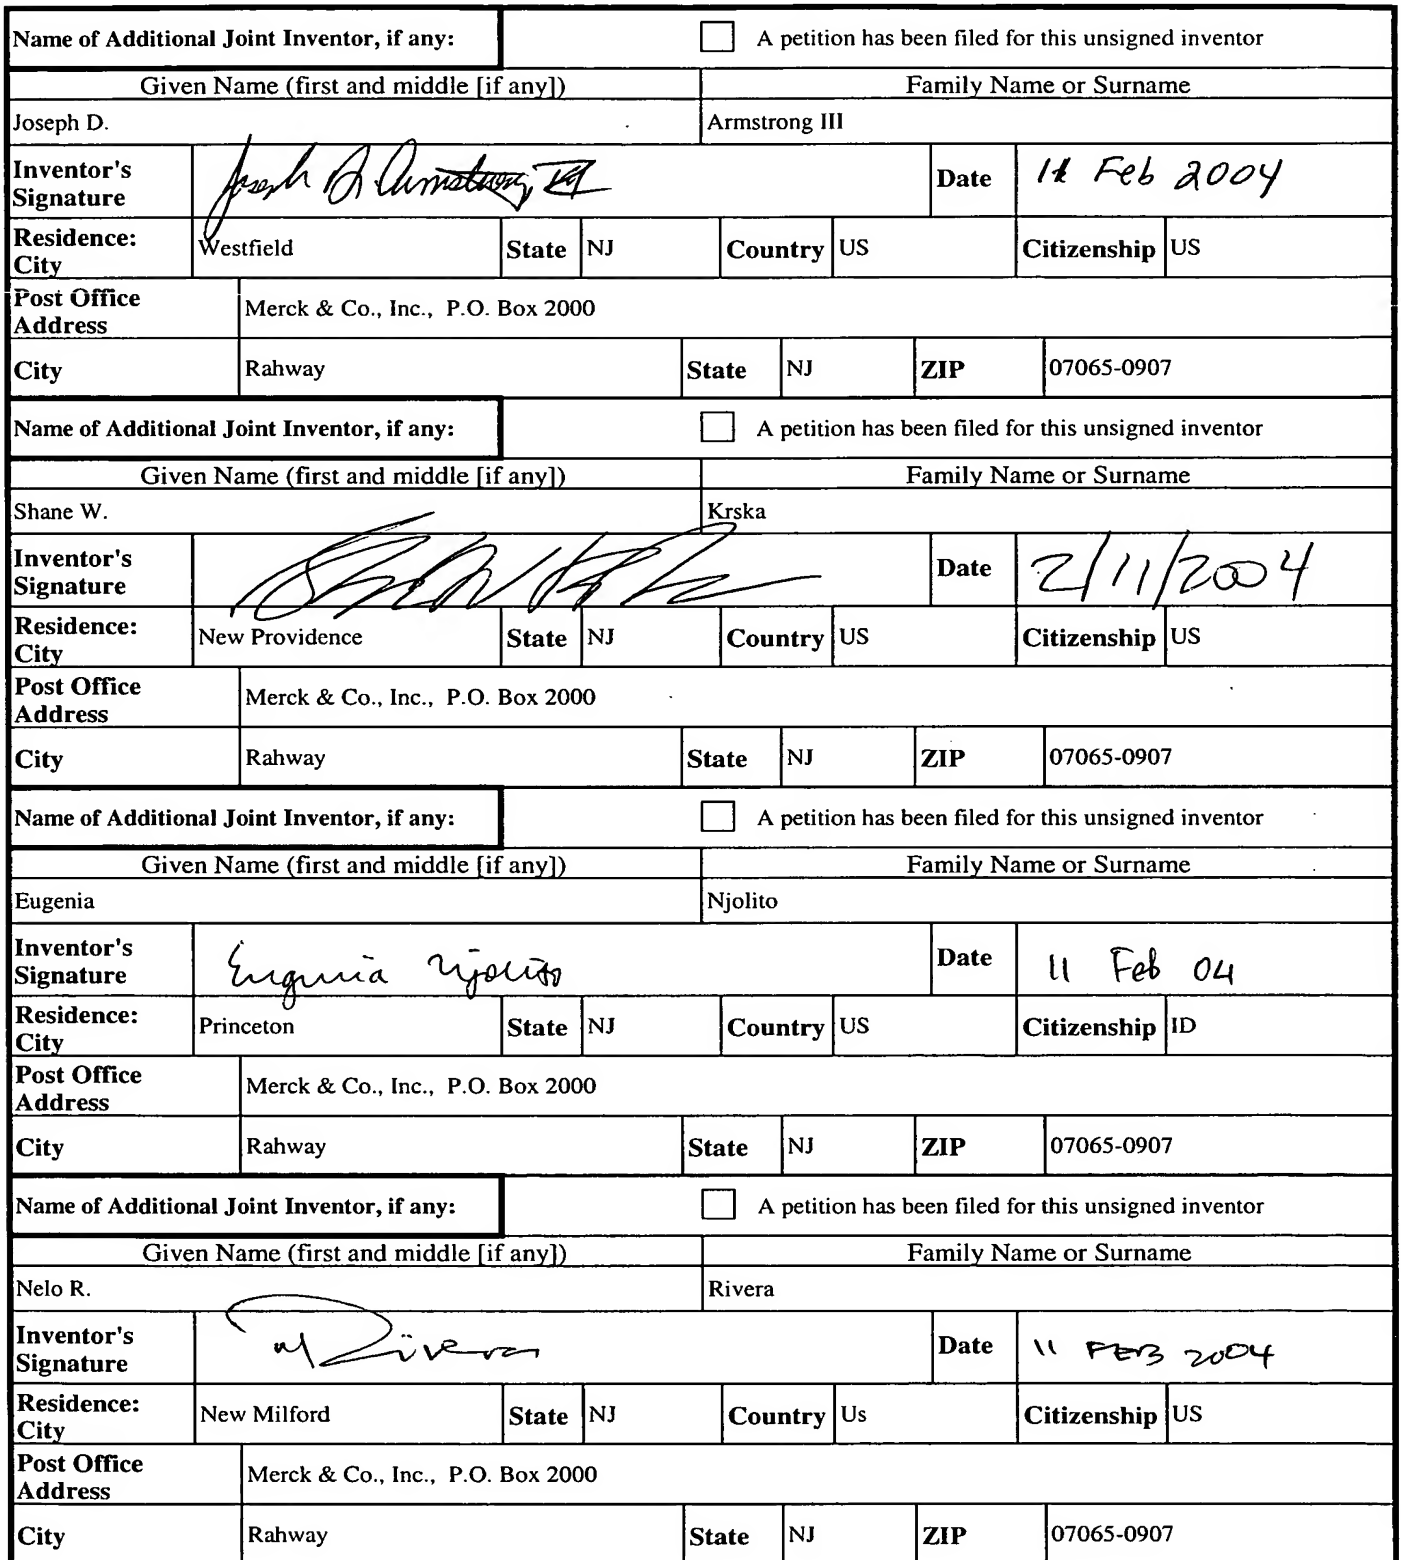 Name of Additional Joint Inventor, if any: A petition has been filed for this unsigned inventor
Given Name (first and middle [if any]) Family Name or Surname
Joseph D. Armstrong III
Inventor's Signature Joseph D. Armstrong III Date 11 Feb 2004
Residence: City Westfield State NJ Country US Citizenship US
Post Office Address Merck & Co., Inc., P.O. Box 2000
City Rahway State NJ ZIP 07065-0907
Name of Additional Joint Inventor, if any: A petition has been filed for this unsigned inventor
Given Name (first and middle [if any]) Family Name or Surname
Shane W. Krska
Inventor's Signature Date 2/11/2004
Residence: City New Providence State NJ Country US Citizenship US
Post Office Address Merck & Co., Inc., P.O. Box 2000
City Rahway State NJ ZIP 07065-0907
Name of Additional Joint Inventor, if any: A petition has been filed for this unsigned inventor
Given Name (first and middle [if any]) Family Name or Surname
Eugenia Njolito
Inventor's Signature Eugenia Njolito Date 11 Feb 04
Residence: City Princeton State NJ Country US Citizenship ID
Post Office Address Merck & Co., Inc., P.O. Box 2000
City Rahway State NJ ZIP 07065-0907
Name of Additional Joint Inventor, if any: A petition has been filed for this unsigned inventor
Given Name (first and middle [if any]) Family Name or Surname
Nelo R. Rivera
Inventor's Signature NRivera Date 11 FEB 2004
Residence: City New Milford State NJ Country Us Citizenship US
Post Office Address Merck & Co., Inc., P.O. Box 2000
City Rahway State NJ ZIP 07065-0907